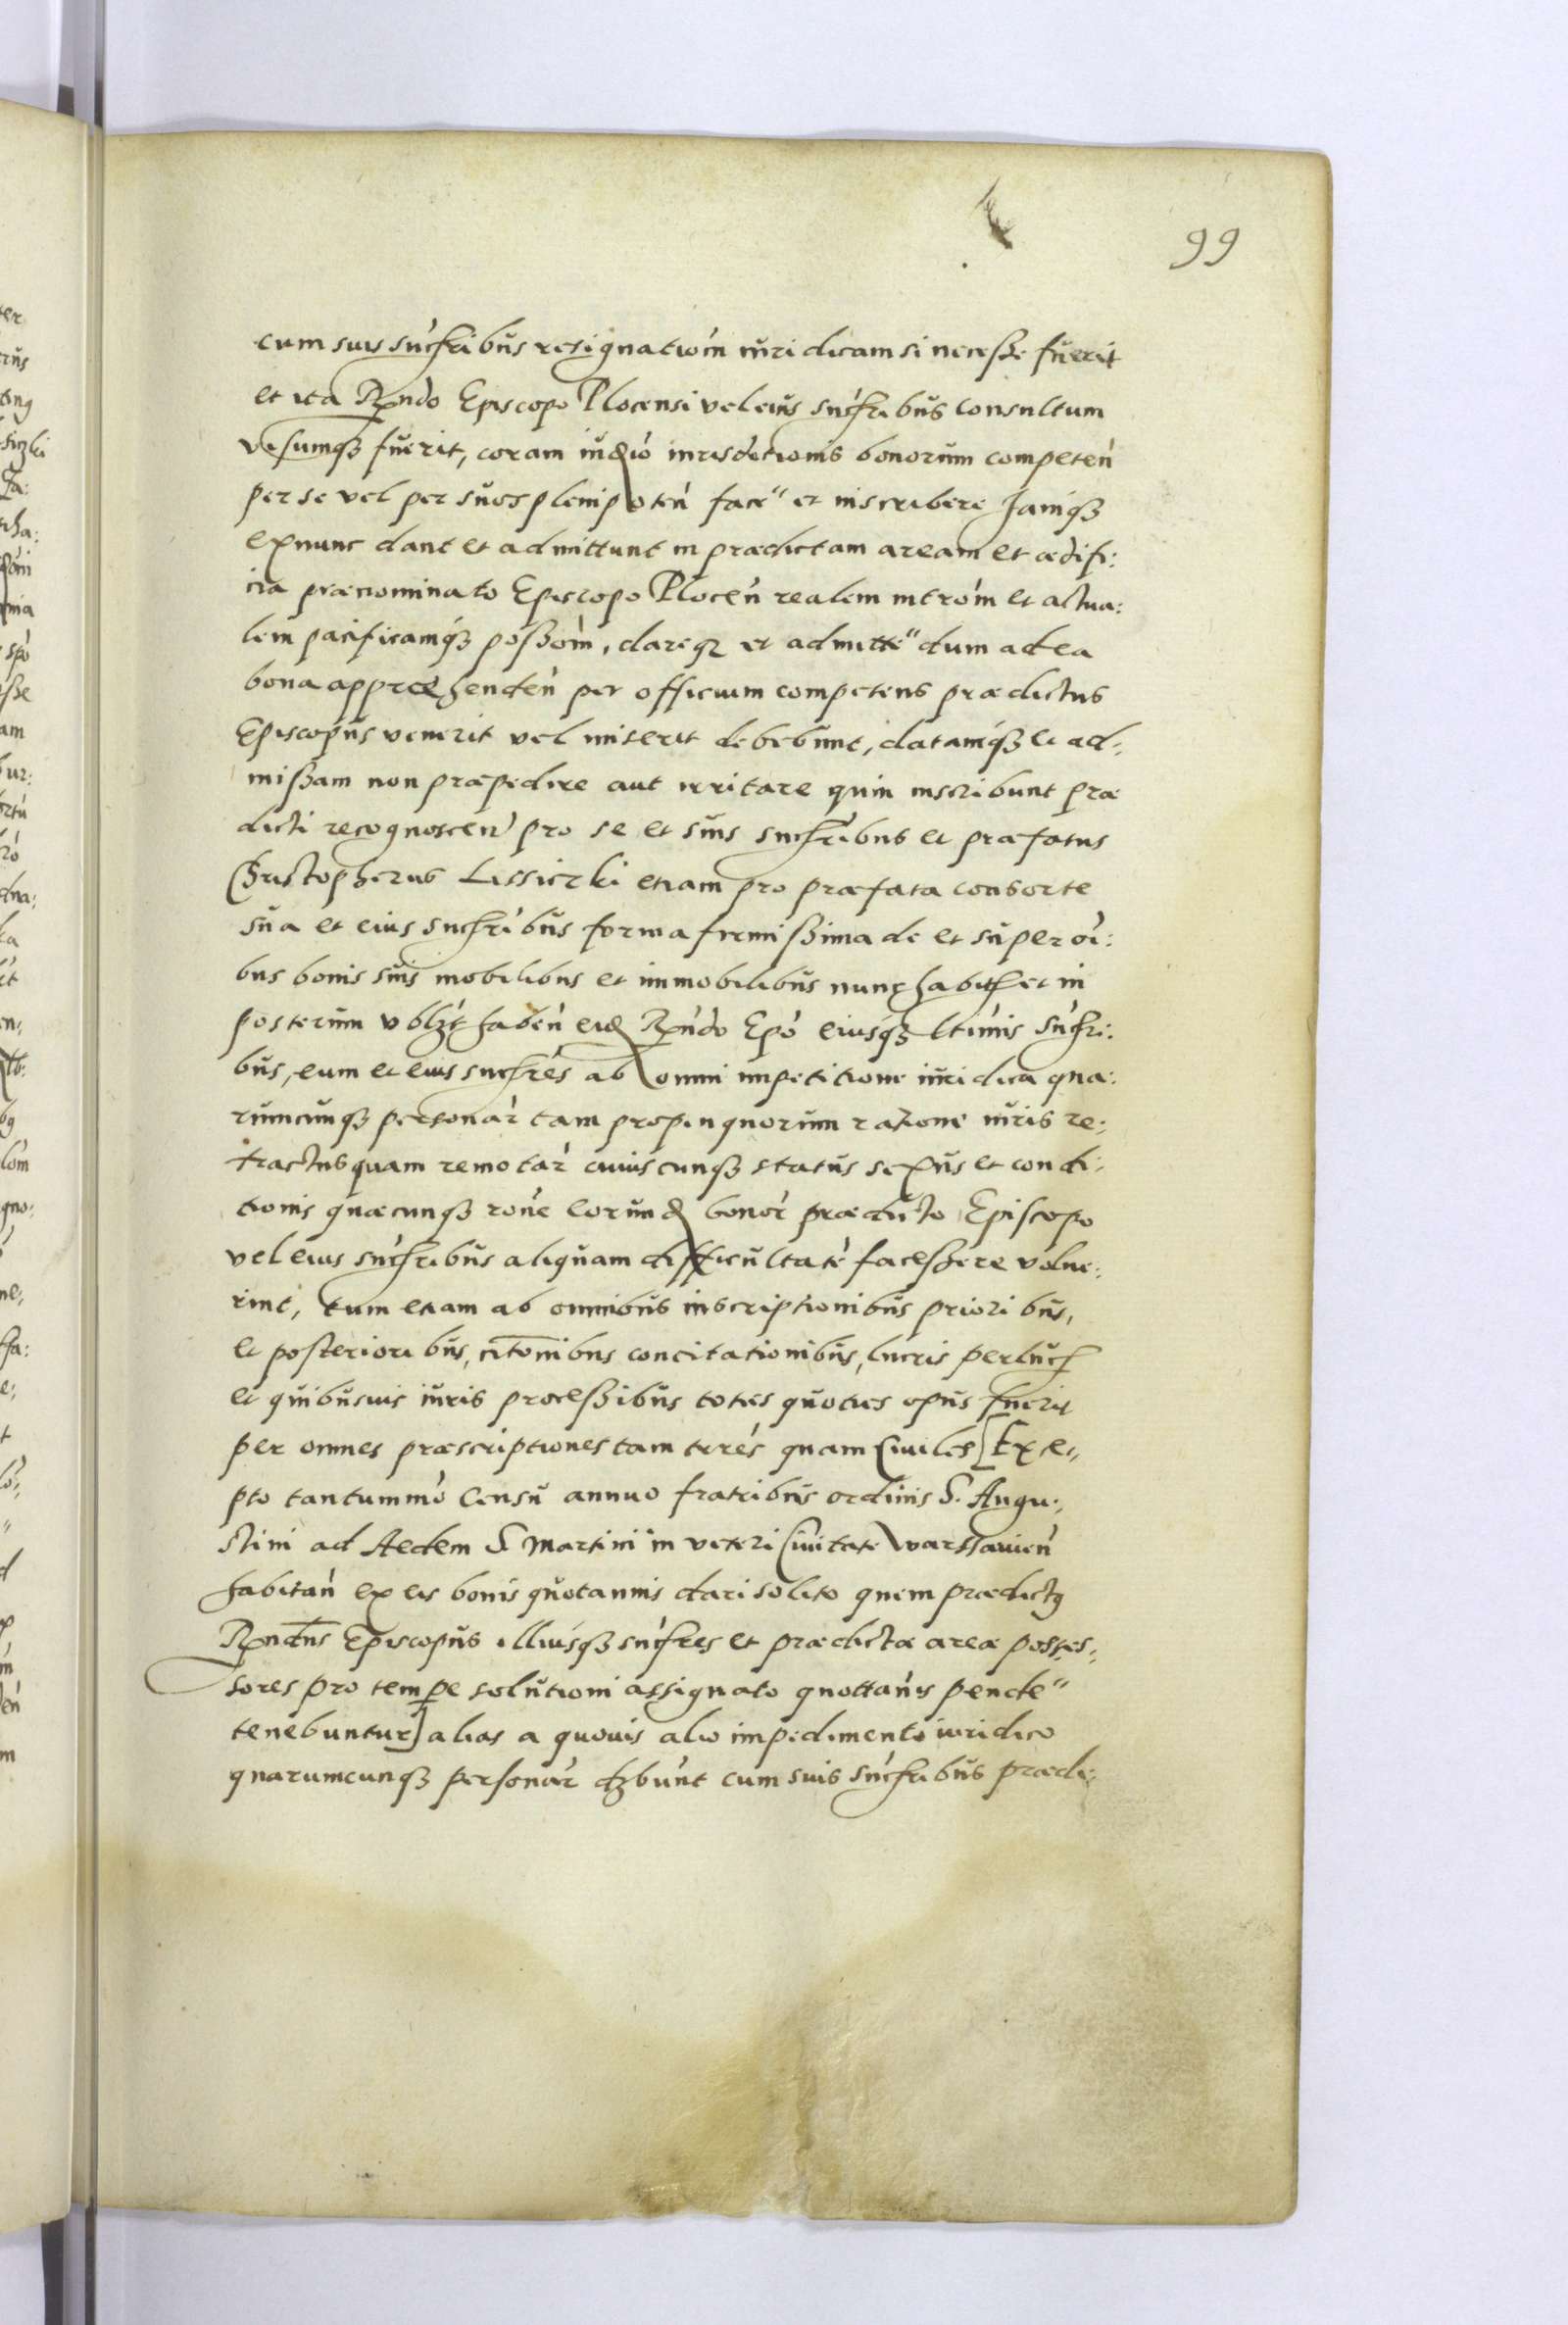 99
cum suis sucśribus resignatiom iuridicam si necesse fuerit
et ita Rndo Episcopo Plocensi vel eius sucśribus consultum
visumq3 fuerit, coram iudio iurisdictionis bonorum competeń
per se vel per suos plenipoteń face" et inscribere Jamq3
exnunc dant et admittunt in praedictam aream et aedifi:
cia praenominato Episcopo Ploceń realem intrôm et actua:
lem pacificamq3 possom, dareq3 et admitte" dum ad ea
bona appraehendeń per officium competens praedictus
Episcopus venerit vel miserit debebunt, datamq3 et ad:
missam non praepedire aut irritare quin inscribunt prae
dicti recognosceń pro se et suis sucśribus et praefatus
Christopherus Lissiczki etiam pro praefata consorte
sua et eius sucśribus forma firmissima de et super oi:
bus bonis suis mobilibus et immobilibus nunc habit et in
posterum vblzt habeń eid Rńdo Epo eiusq3 ltimis sucśri:
bus, eum et eius sucśres ab omni impetitione iuridica qua:
rumcunq3 personar tam propinquorum ratione iuris re:
tractus quam remotar cuiuscunq3 status sexus et condi:
tionis quaecunq3 rone eorund bonor praedicto Episcopo
vel eius sucśribus aliquam difficultatè facessere volue:
rint, tum etiam ab omnibus inscriptionibus prioribus,
et posterioribus, citonibus concitationibus, lucris perluc
et quibusuis iuris processibus toties quoties opus fuerit
per omnes praescriptiones tam trres quam Ciuiles [Exce:
pto tantummo Censu annuo fratribus ordinis S. Augu:
stini ad Aedem S Martini in veteri Ciuitate Warssauień
habitań ex eis bonis quotannis dari solito quem praedict9
Rndus Episcopus illiusq3 sucśres et praedictae areae posses:
sores pro tempe solutioni assignato quottanis pende"
tenebuntur] alias a quouis alio impedimento iuridico
quarumcunq3 personar dzbunt cum suis sucśribus praedi: